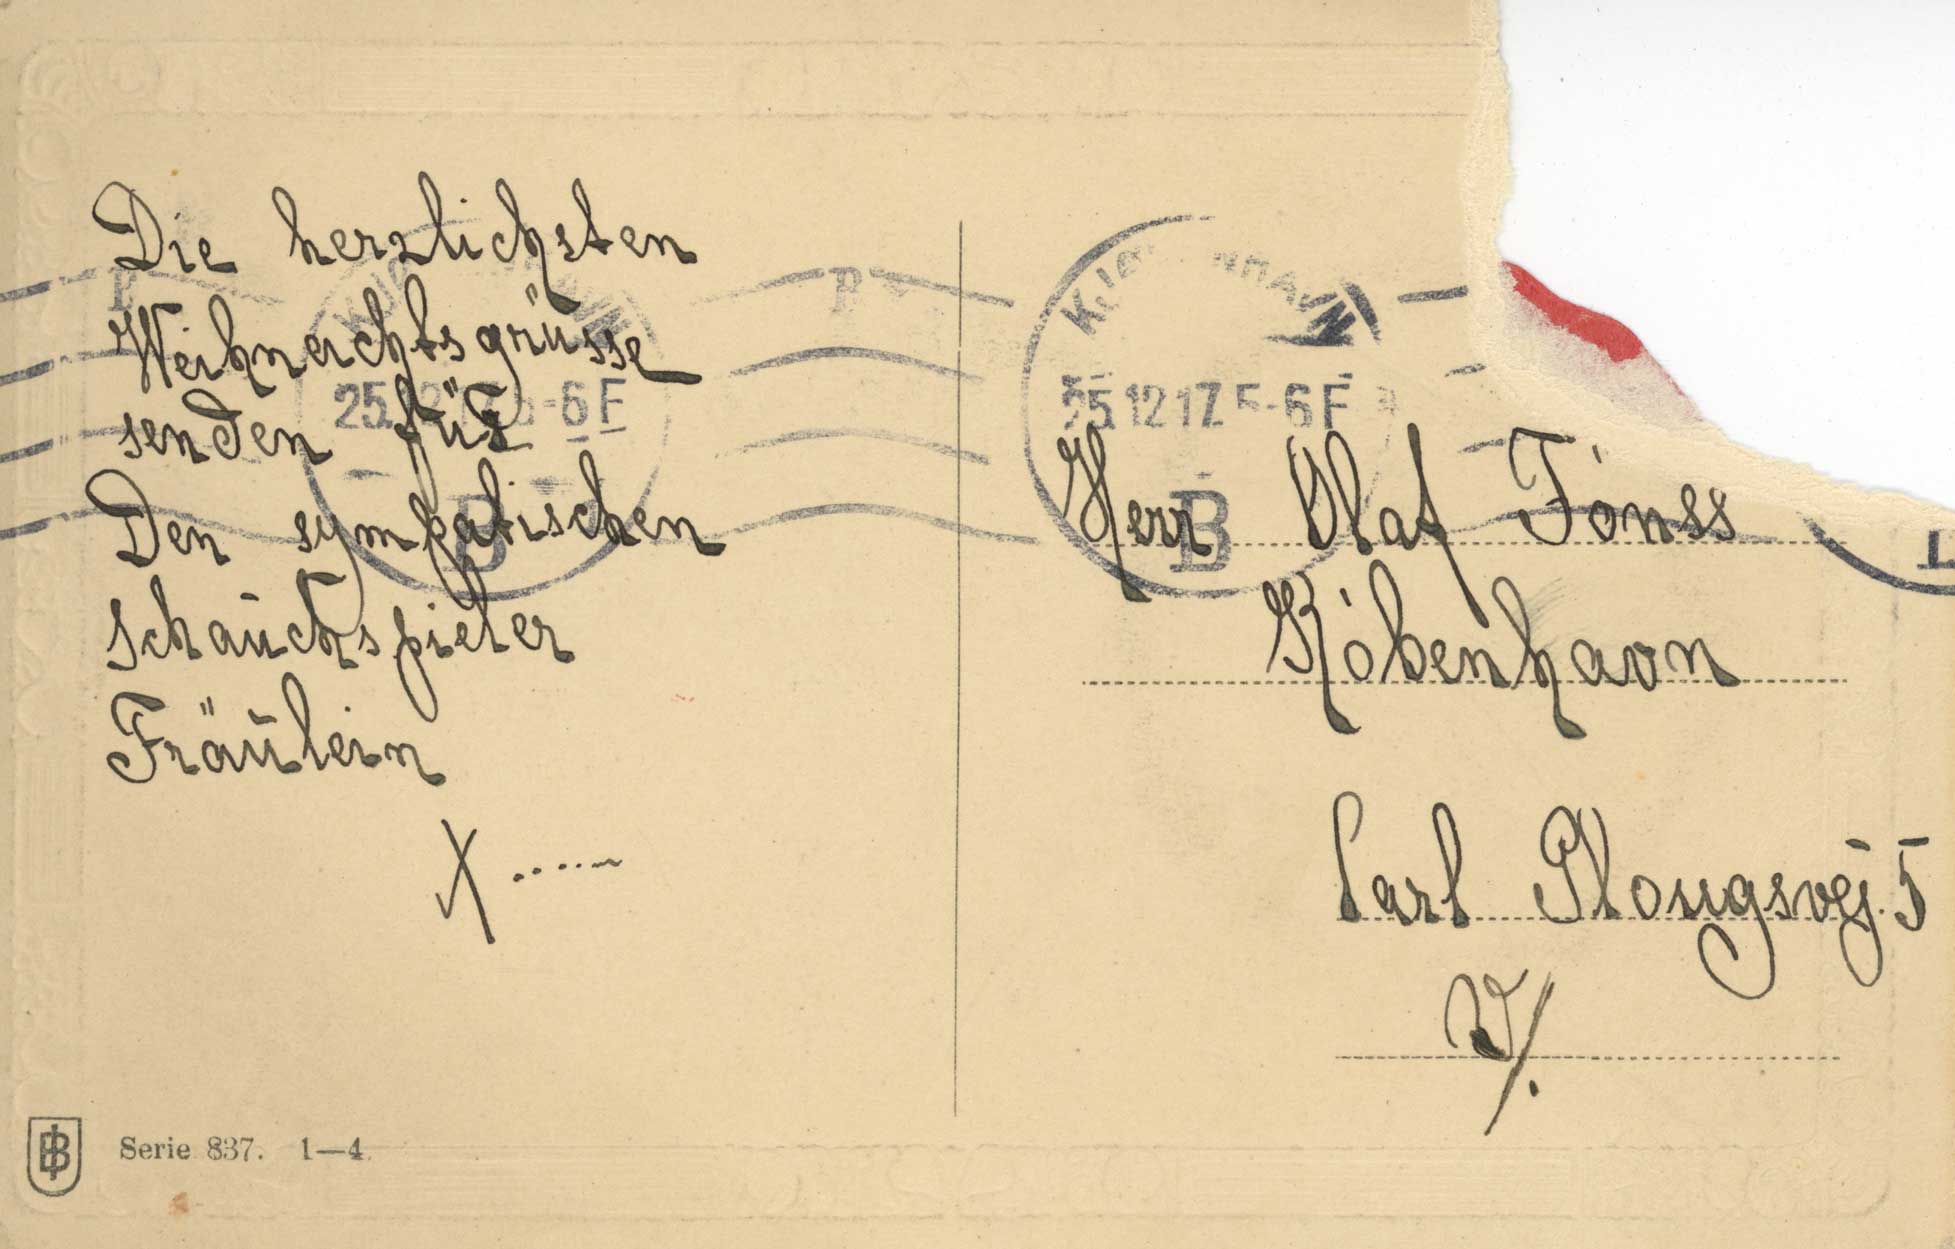 Die herzlichsten
Weihnachtsgrüsse
senden für
Den sympatischen
Schauchspieler
Fräulein
X.....
KJØBENHAVN
25.12.17. 5-6 F
B
KJØBENHAVN
25.12.17. 5-6 F
B
Herr Olaf Fónss
Kóbenhavn
Carl Plougsvej. 5
V/.
Serie 837. 1—4